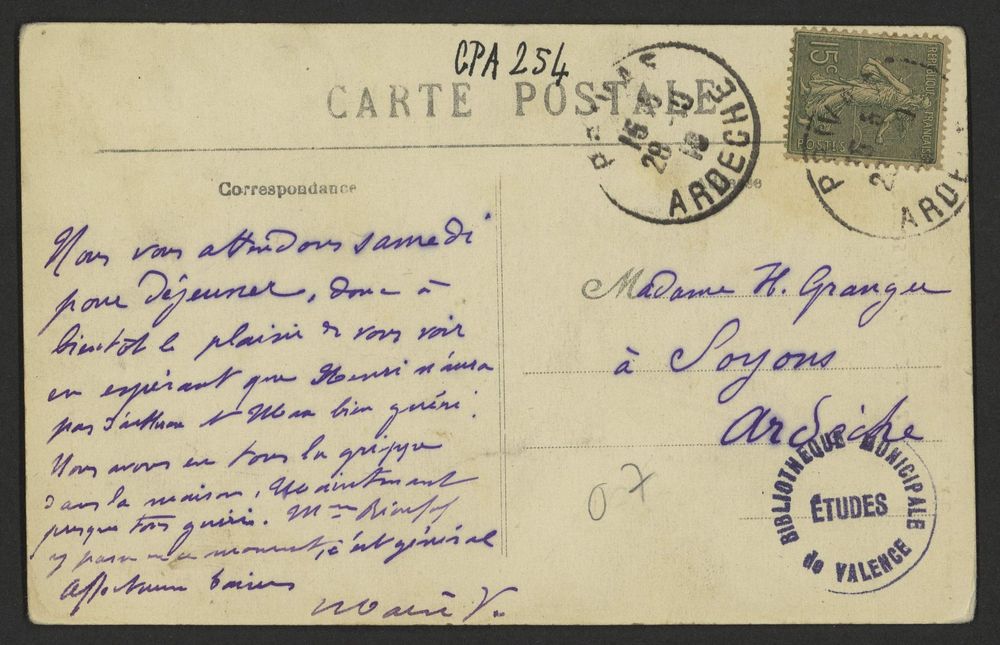 CPA 254
CARTE POSTALE
PRIVAS
15 5
29 10
18
ARDECHE
REPUBLIQUE FRANÇAISE
15c
POSTES
ARD
Correspondance
Nous vous attendons samedi
pour déjeuner, donc à
bientôt le plaisir de vous voir
en espérant que Henri n'aura
pas d'asthme et Max bien guéri.
Nous avons eu tous la grippe
dans la maison. Maintenant
presque tous guéris. Mme
y passe en ce moment, c'est général
Affectueux baisers
Marie V.
Madame H. Granger
à Soyons
Ardèche
07
BIBLIOTHEQUE MUNICIPALE
ÉTUDES
de VALENCE